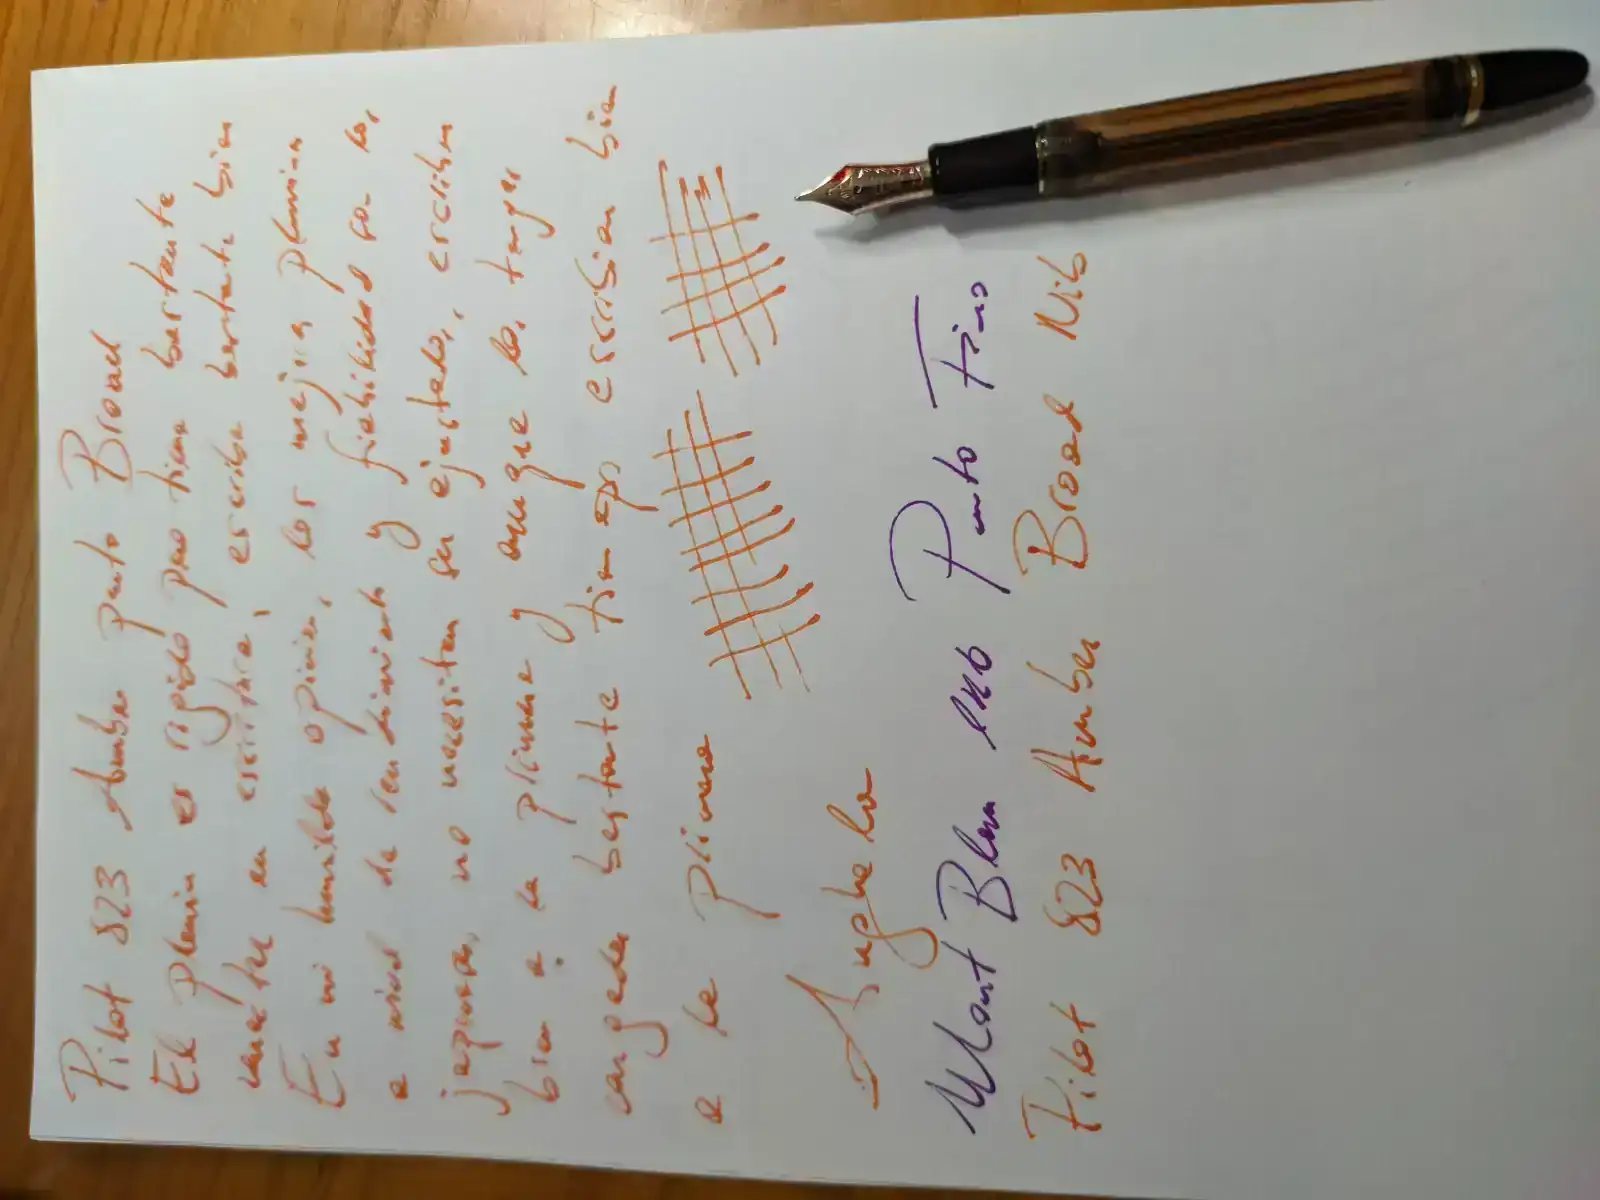 Pilot 823 Ambar punto Broad
El plumin es rigido pero tiene bastante
caracter en escritura, escribe bastante bien
En mi humilde opinion, los mejores plumines
a nivel de rendimiento y fiabilidad son los
japoneses, no necesitan ser ajustados, escriben
bien a la primera y aunque los tengas
cargados bastante tiempo escriben bien
a la primera
Mont Blanc Punto Fino
Pilot 823 Amber Broad Nib